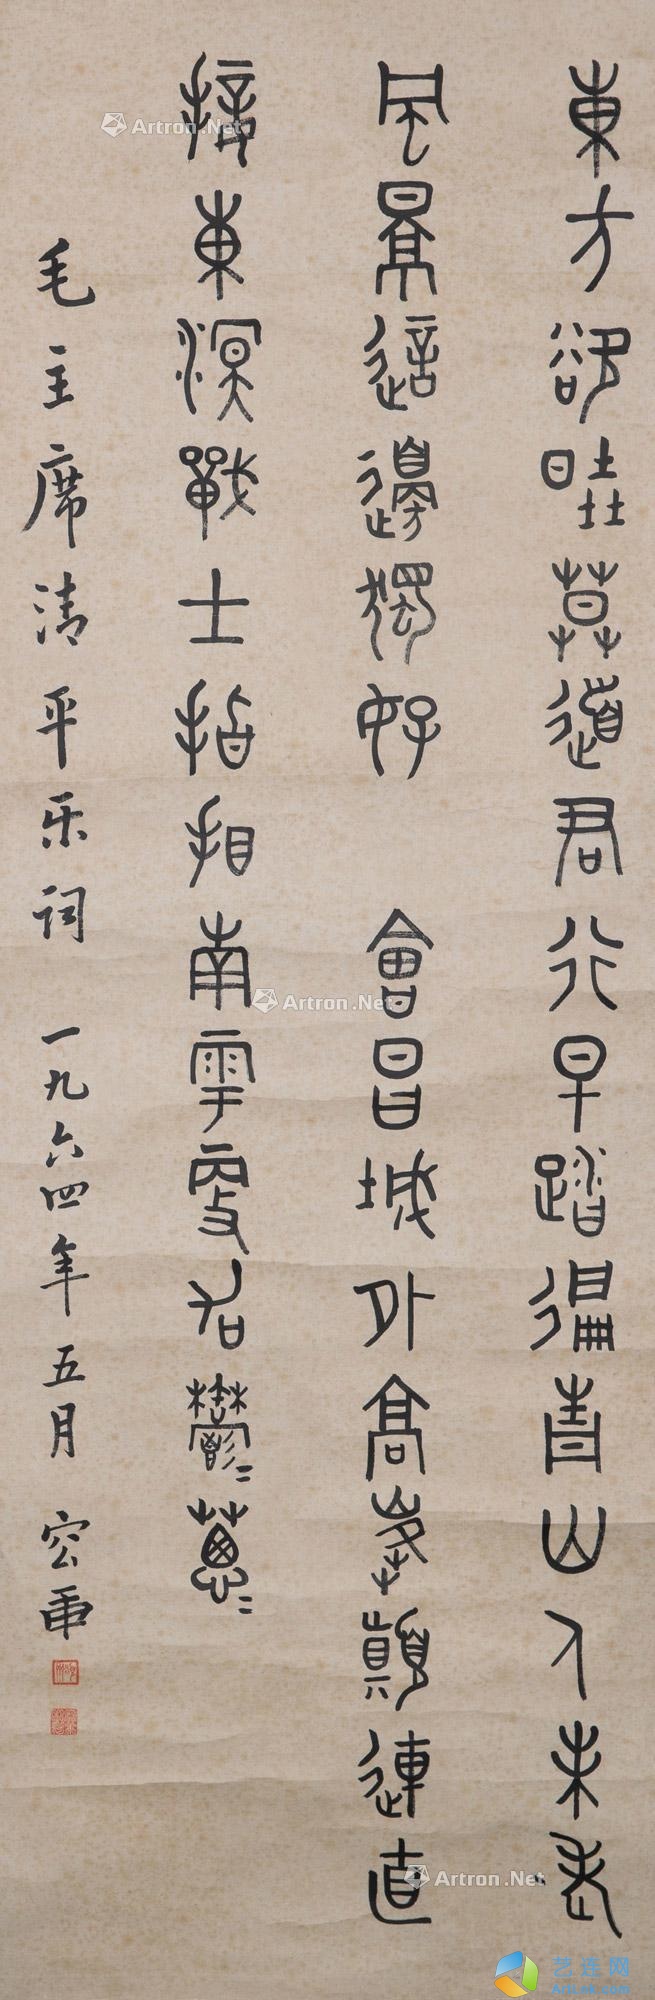 東方欲曉莫道君行早踏徧青山人未老
風景這邊獨好 會昌城外高峯顛連直
接東溟戰士指指南粤更加鬱〻蔥〻
毛主席清平乐词 一九六四年五月
Artron.Net
Artron.Net
Artron.Net
艺连网